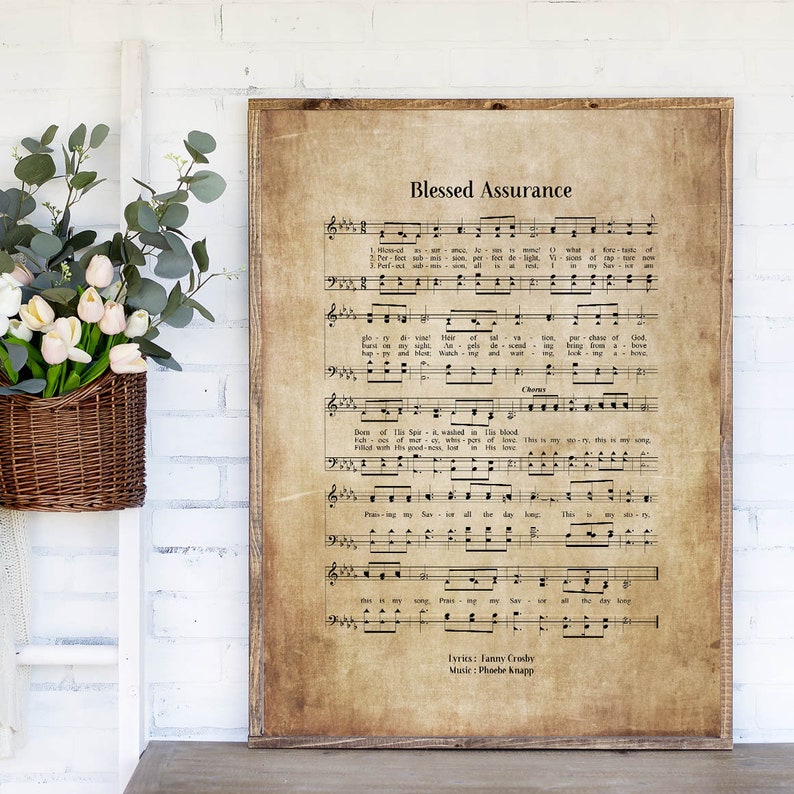 Blessed Assurance
1. Bless-ed as - sur - ance, Je - sus is mine! O what a fore - taste of
2. Per - fect sub - mis - sion, per - fect de - light, Vi - sions of rap - ture now
3. Perf - ect sub - mis - sion, all is at rest, I in my Sav - ior am
glo - ry di - vine! Heir of sal - va - tion, pur - chase of God,
burst on my sight; An - gels de - scend - ing bring from a - bove
hap - py and blest; Watch - ing and wait - ing, look - ing a - bove,
Chorus
Born of His Spir - it, washed in His blood.
Ech - oes of mer - cy, whis - pers of love. This is my sto - ry, this is my song,
Filled with His good - ness, lost in His love.
Praising my Sav - ior all the day long; This is my sto - ry,
this is my song, Prais - ing my Sav - ior all the day long
Lyrics : Fanny Crosby
Music : Phoebe Knapp